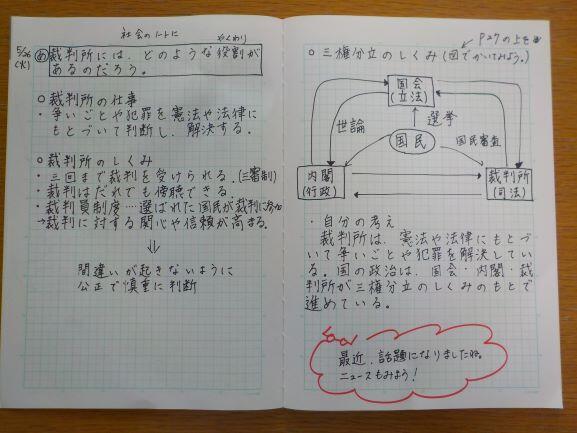 社会のノートに
5/26
(火)
やくわり
め 裁判所には、どのような役割が
あるのだろう。
○裁判所の仕事
・争いごとや犯罪を憲法や法律に
もとづいて判断し、解決する。
○裁判所のしくみ
・三回まで裁判を受けられる。(三審制)
・裁判はだれでも傍聴できる。
・裁判員制度…選ばれた国民が裁判に参加
→裁判に対する関心や信頼が高まる。
⇓
間違いが起きないように
公正で慎重に判断
P27の上を
○三権分立のしくみ(図でかいてみよう。)
国会
(立法)
世論
選挙
国民
国民審査
内閣
(行政)
裁判所
(司法)
・自分の考え
裁判所は、憲法や法律にもとづ
いて争いごとや犯罪を解決してい
る。国の政治は、国会・内閣・裁
判所が三権分立のしくみのもとで
進めている。
最近、話題になりましたね。
ニュースもみよう!